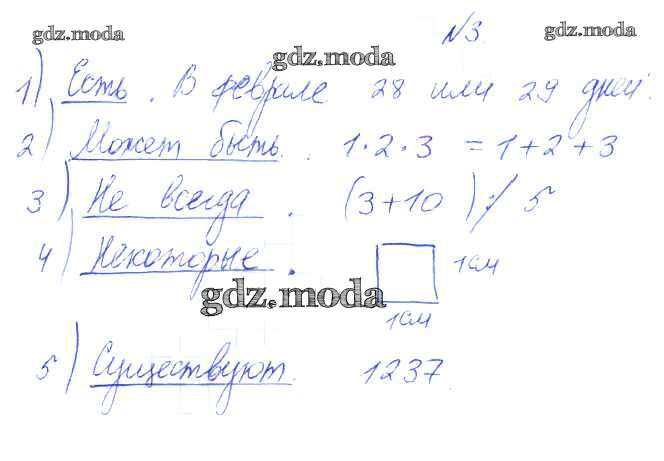 gdz.moda
№3.
gdz.moda
gdz.moda
1) Есть. В феврале 28 или 29 дней.
2) Может быть. 1·2·3 = 1+2+3
3) Не всегда. (3+10) ⋮̸ 5
4) Некоторые. 1см
gdz.moda
1см
5) Существуют. 1237.